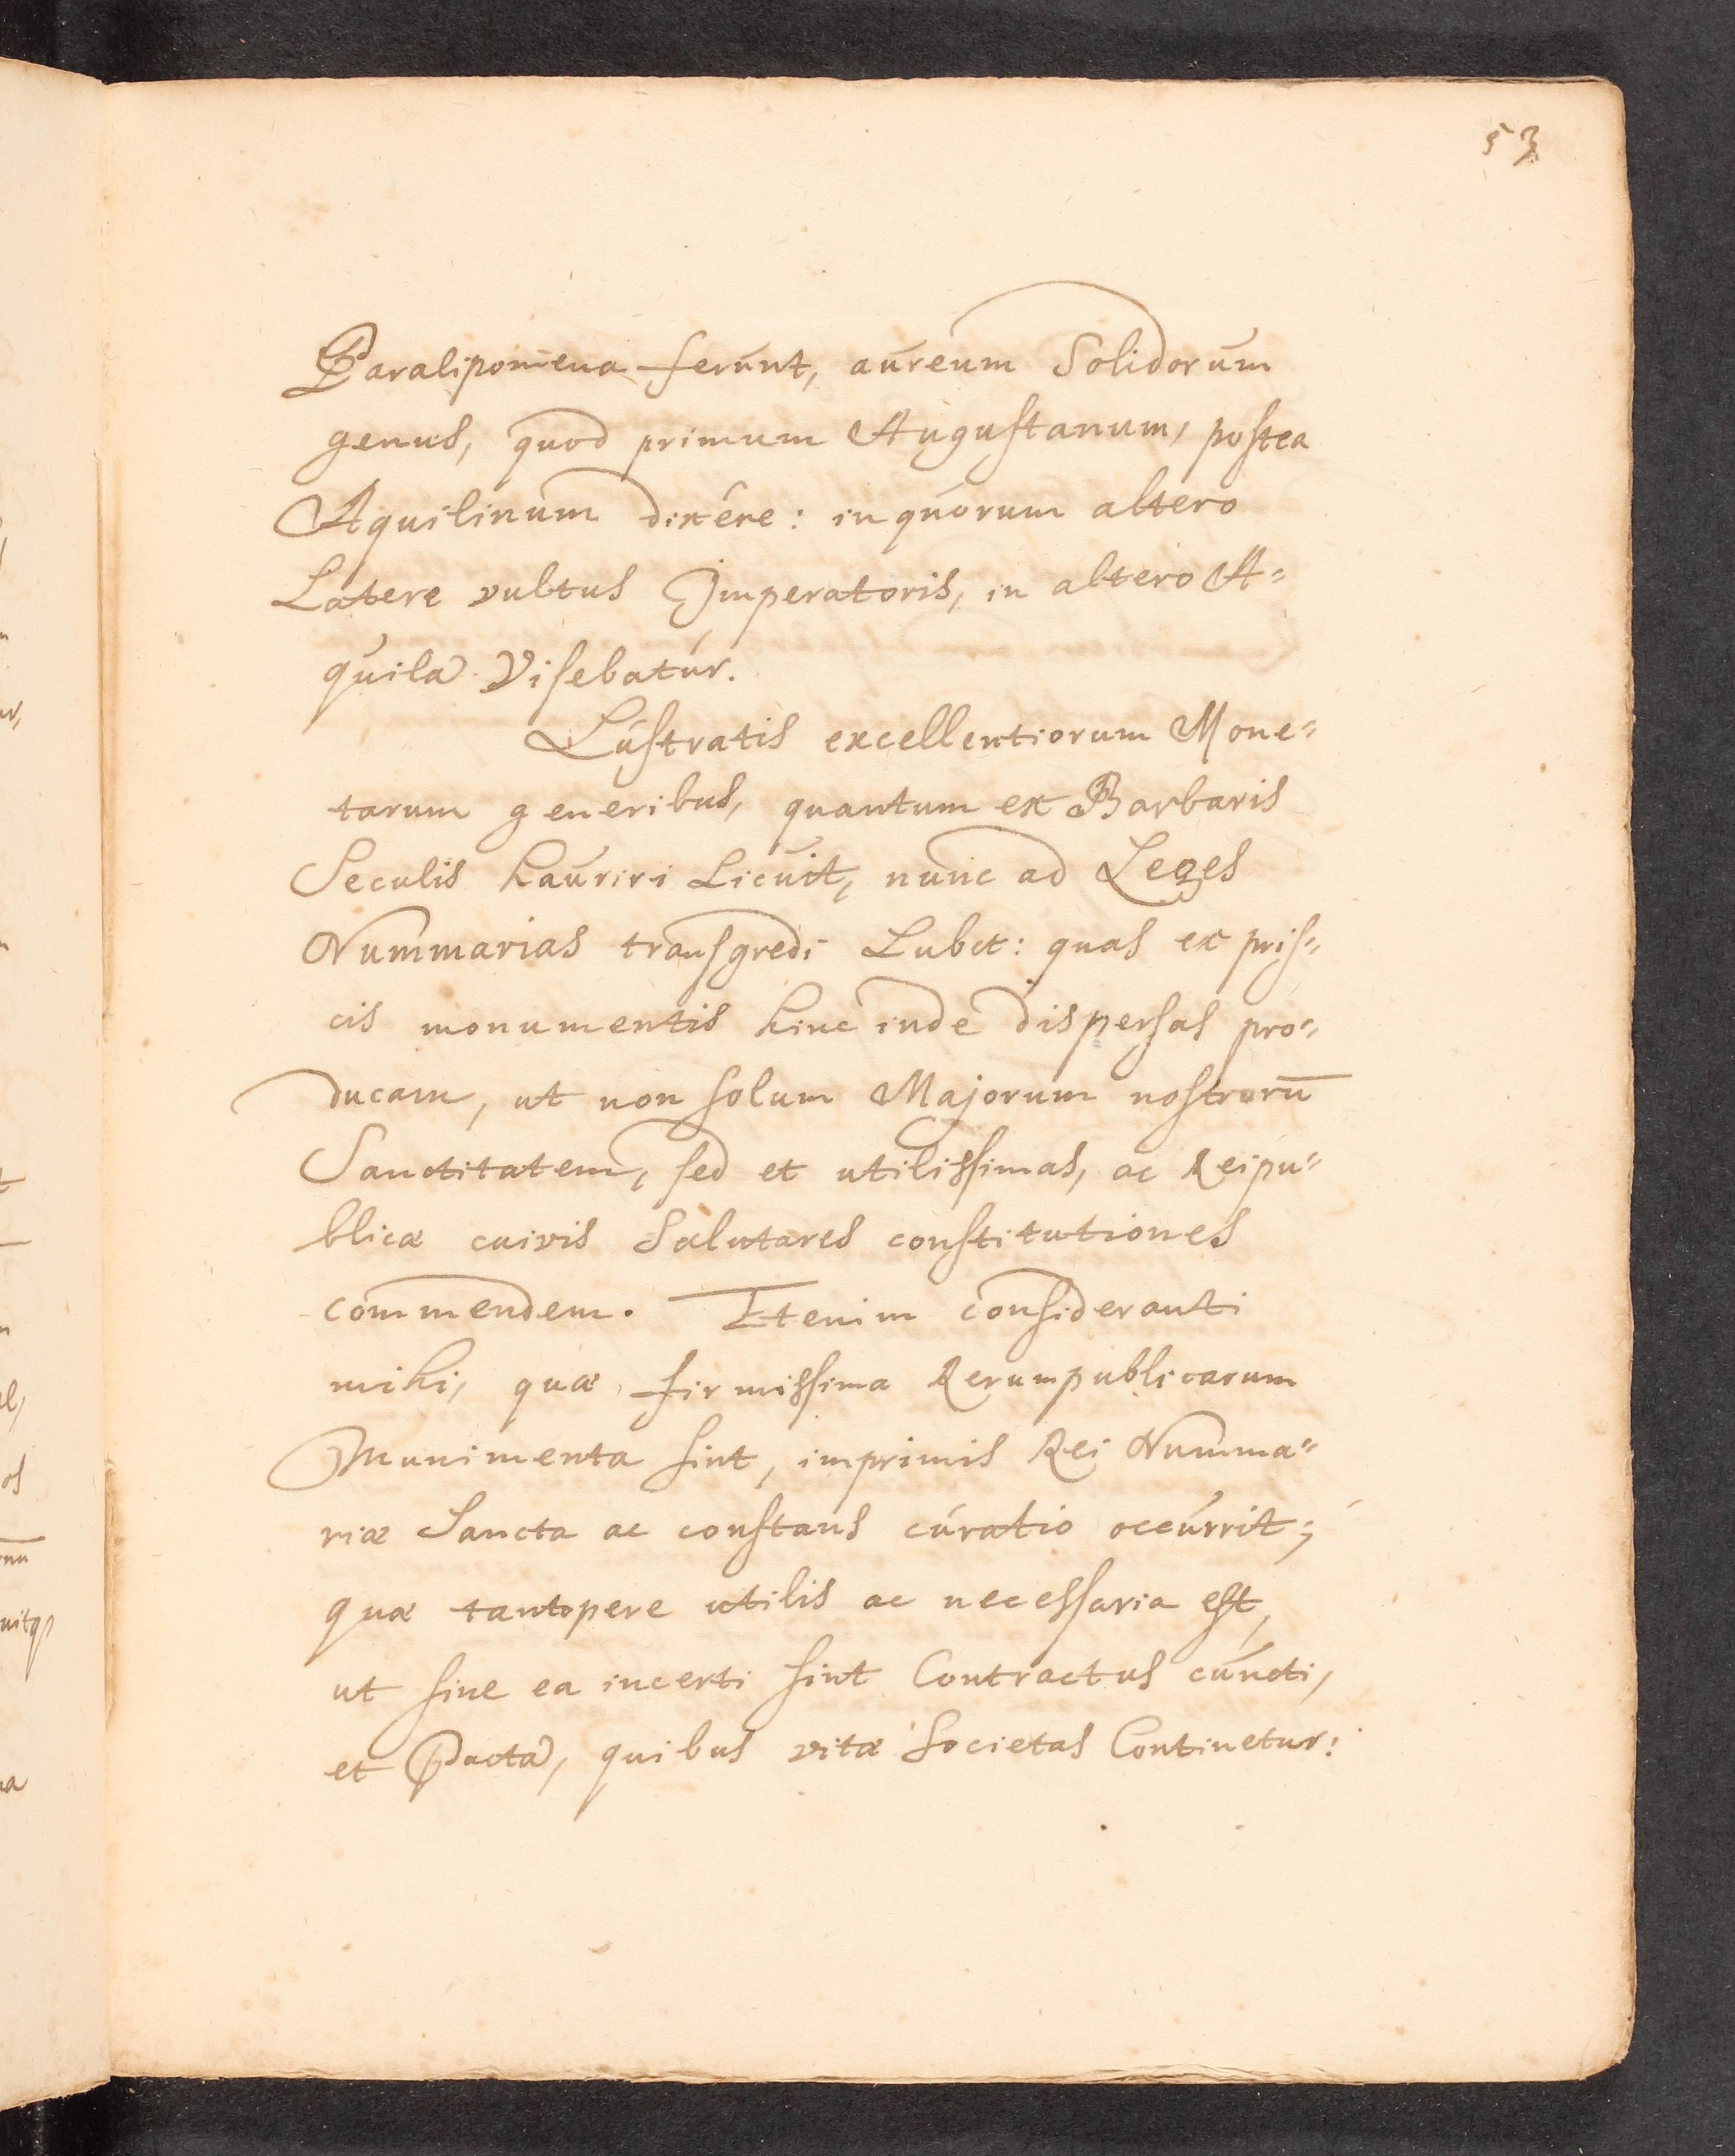 53
Paralipomena ferunt, aureum Solidorum
genus, quod primum Augustanum, postea
Aquilinum dixêre: in quorum altero
Latere vultus Imperatoris, in altero A=
quila Visebatur.
Lustratis excellentiorum Mone=
tarum generibus, quantum ex Barbaris
Seculis hauriri Licuit, nunc ad Leges
Nummarias transgredi Lubet: quas ex pris=
cis monumentis hinc inde dispersas pro=
ducam, ut non solum Majorum nostrorū
Sanctitatem, sed et utilissimas, ac Reipu=
blicæ cuivis Salutares constitutiones
commendem. Etenim consideranti
mihi, quæ firmissima Rerumpublicarum
Munimenta sint, imprimis Rei Numma=
riæ Sancta ac constans curatio occurrit;
quæ tantopere utilis ac necessaria est,
ut sine ea incerti sint Contractus cuncti,
et Pacta, quibus vitæ Societas Continetur: